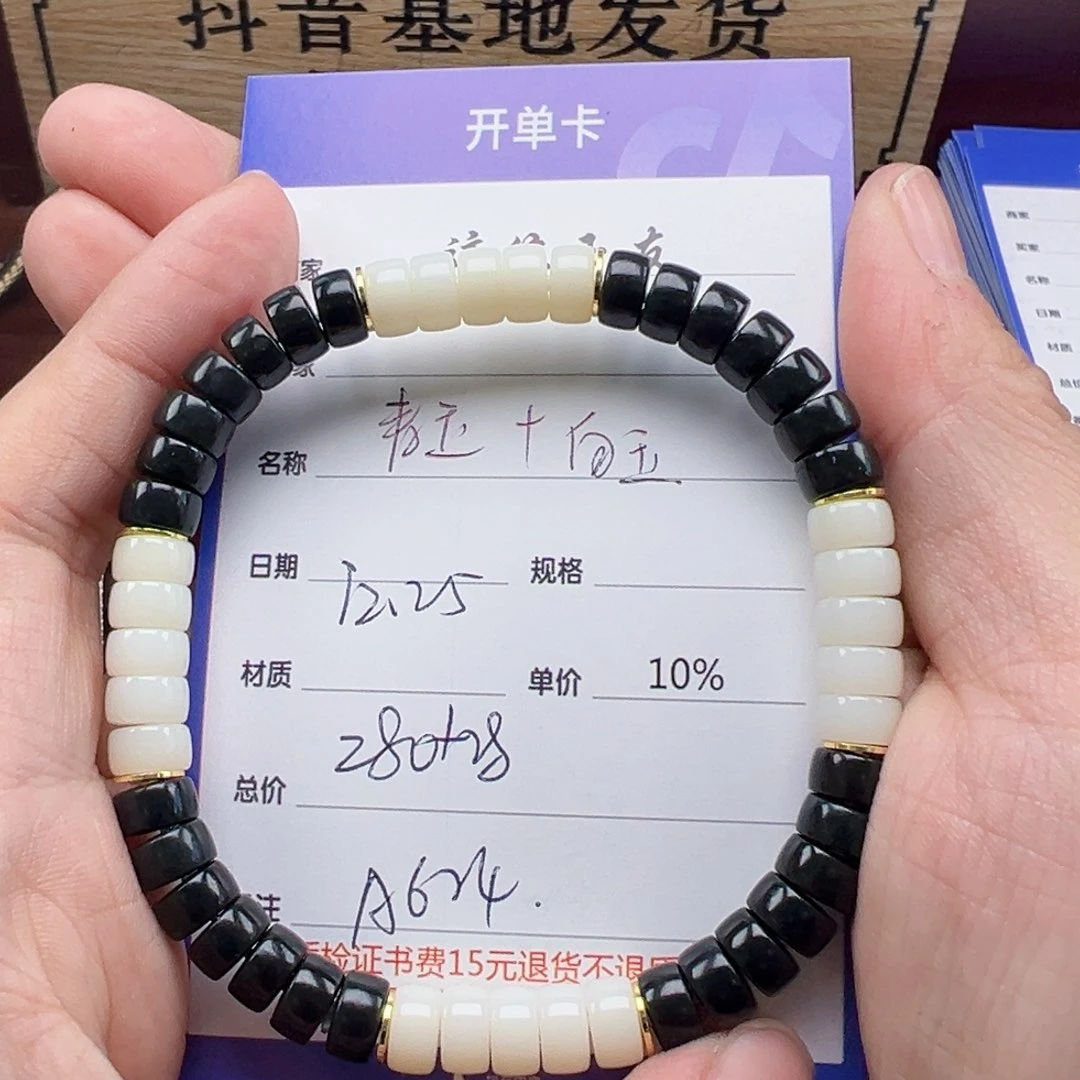 抖音基地发货
开单卡
家
家
名称 青玉+白玉
日期 12.25 规格
材质 单价 10%
总价 280+28
注 A624.
质检证书费15元退货不退
商家
买家
名称
日期
材质
总价